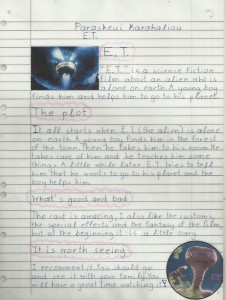 Paraskeui Karahaliou
E.T.
E.T.
"E.T." is a science fiction
film about an alien who is
alone on earth. A young boy
finds him and helps him to go to his planet.
The plot
It all starts when E.T. (the alien) is alone
on earth. A young boy finds him in the forest
of the town. Then he takes him to his room. He
takes care of him and he teaches him some
things. A little while later E.T. tries to tell
him that he wants to go to his planet and the
boy helps him.
What's good and bad
The cast is amazing. I also like the customs,
the special effects and the fantasy of the film,
but at the beginning it is a little scary.
It is worth seeing
I recommend it. You should go
and see it with your family. You
will have a great time watching it.